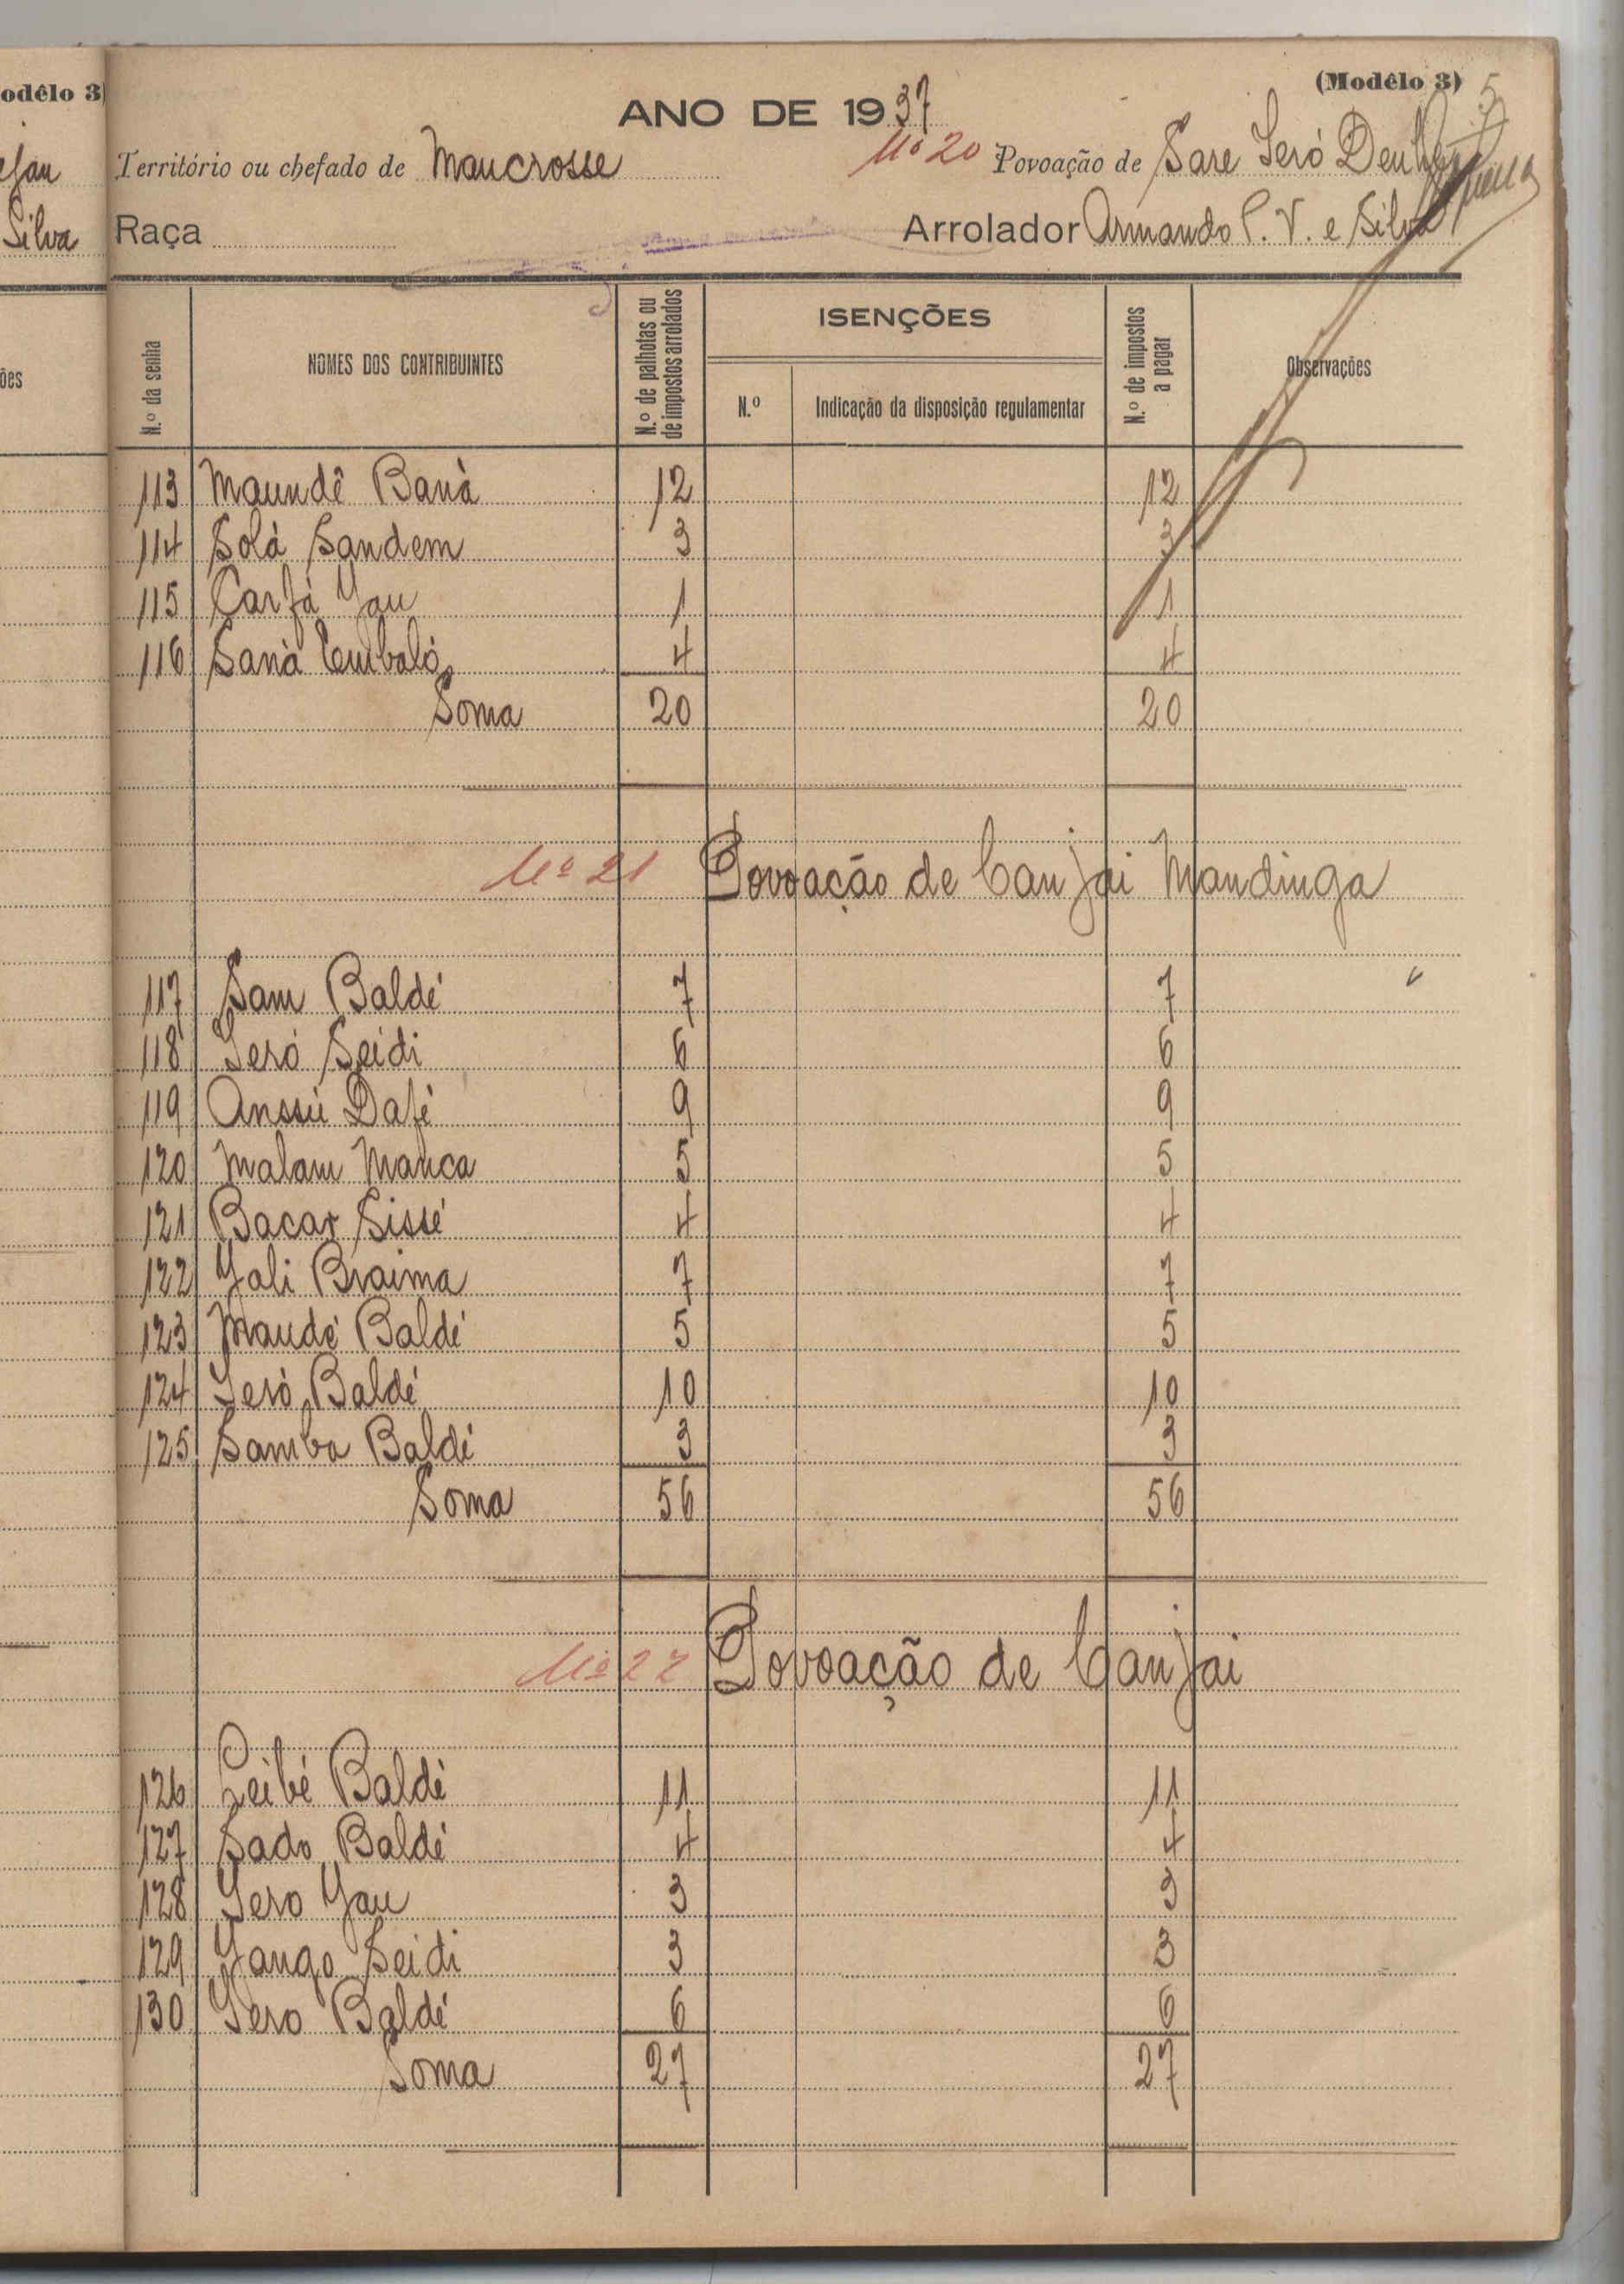 odêlo 3)
Silva
ões
(Modêlo 3) 5
ANO DE 1937
Território ou chefado de Mancrosse Nº 20 Povoação de Sare Ieró
Raça Arrolador Armando P. V. e Silva
N.º da senha NOMES DOS CONTRIBUINTES N.º de palhotas ou de impostos arrolados ISENÇÕES N.º de impostos a pagar Observações
N.º Indicação da disposição regulamentar
113 Maundê Banà 12 12
114 Solà Sandem 3 3
115 Carfà Yau 1 1
116 Sanà Embaló 4 4
Soma 20 20
Nº 21 Povoação de Canjai Mandinga
117 Sam Baldé 7 7
118 Ieró Seidi 6 6
119 Anssú Dafé 9 9
120 Malam Manca 5 5
121 Bacar Sissé 4 4
122 Yali Braima 7 7
123 Maudé Baldé 5 5
124 Ieró Baldé 10 10
125 Samba Baldé 3 3
Soma 56 56
Nº 22 Povoação de Canjai
126 Leibé Baldé 11 11
127 Sado Baldé 4 4
128 Iero Yau 3 3
129 Yango Seidi 3 3
130 Iero Baldé 6 6
Soma 27 27